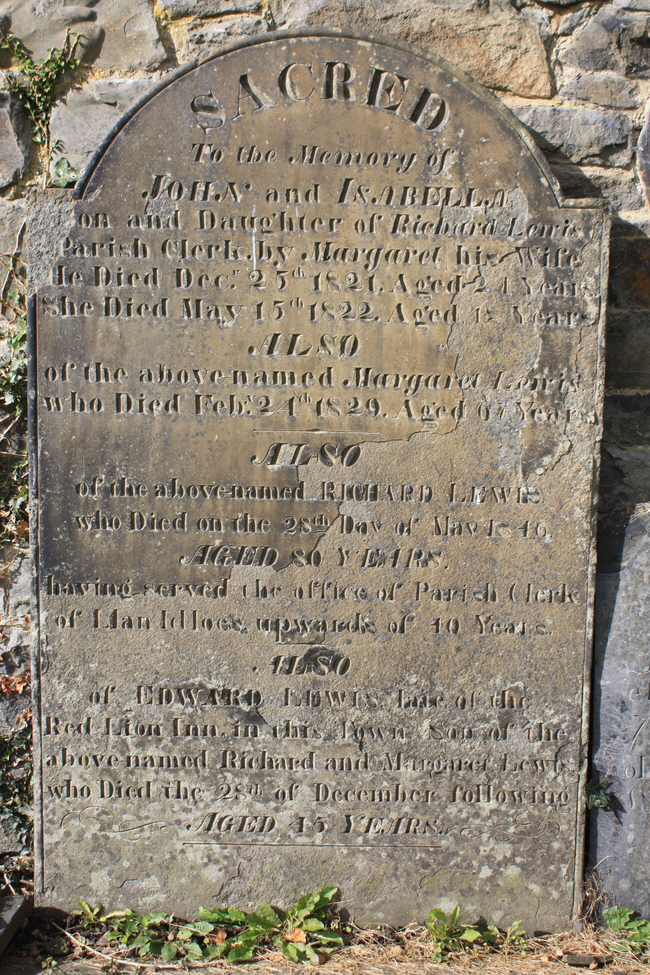 SACRED
To the Memory of
JOHN and ISABELLA
on and Daughter of Richard Lewis
Parish Clerk, by Margaret his Wife
He Died Decr. 25th 1821, Aged 24 Years
She Died May 15th 1822, Aged Years
ALSO
of the above-named Margaret Lewis
who Died Feby. 24th 1829, Aged Years
ALSO
of the above-named RICHARD LEWIS.
who Died on the 28th Day of May 1846
AGED 80 YEARS.
having served the office of Parish Clerk
of Llan Idloes, upwards of 40 Years.
ALSO
of EDWARD LEWIS, late of the
Red Lion Inn, in this Town, Son of the
above-named Richard and Margaret Lewis
who Died the 28th of December following
AGED 45 YEARS.